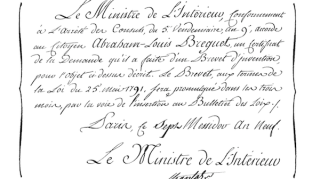 Le Ministre de l'Intérieur, Conformément
à l'Arrêté des Consuls du 5. Vendémiaire, an 9e, accorde
au Citoyen Abraham-Louis Breguet, un Certificat
de la Demande qu'il a faite d'un Brevet d'Invention,
pour l'objet ci-dessus décrit. Le Brevet, aux termes de
la Loi du 25. mai 1791, sera promulgué dans les trois
mois, par la voie de l'insertion au Bulletin des Loix./.
Paris, ce Sept Messidor An Neuf.
Le Ministre de l'Intérieur